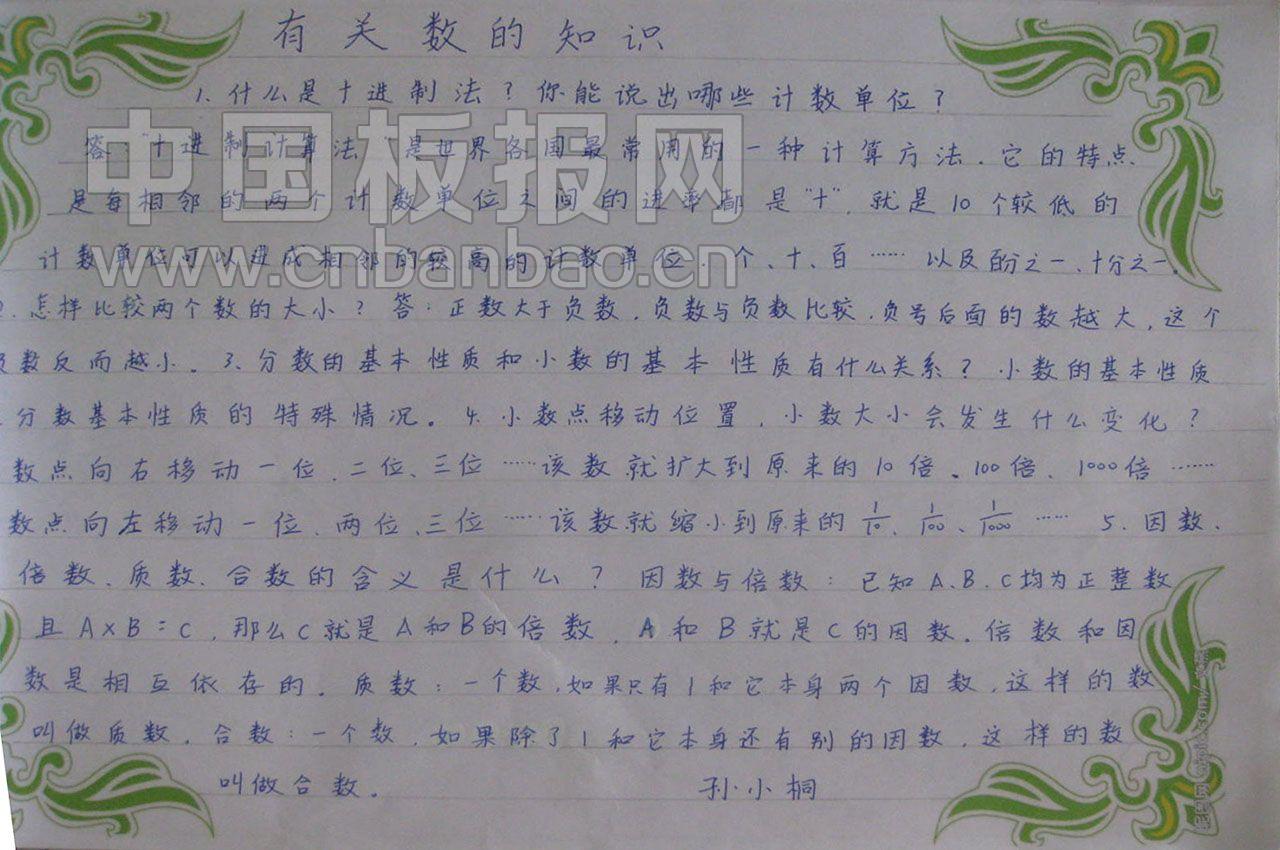 有关数的知识
1、什么是十进制法？你能说出哪些计数单位？
答："十进制计算法"是世界各国最常用的一种计算方法.它的特点
是每相邻的两个计数单位之间的进率都是"十",就是10个较低的
计数单位可以进成相邻的较高的计数单位 个、十、百……以及百分之一、十分之一.
2.怎样比较两个数的大小？答：正数大于负数,负数与负数比较,负号后面的数越大,这个
负数反而越小。3、分数的基本性质和小数的基本性质有什么关系？小数的基本性质
分数基本性质的特殊情况。4、小数点移动位置,小数大小会发生什么变化？
数点向右移动一位、二位、三位……该数就扩大到原来的10倍、100倍、1000倍……
数点向左移动一位、两位、三位……该数就缩小到原来的1/10、1/100、1/1000……5、因数、
倍数、质数、合数的含义是什么？因数与倍数：已知A、B、C均为正整数
且A×B=C,那么C就是A和B的倍数,A和B就是C的因数。倍数和因
数是相互依存的。质数：一个数,如果只有1和它本身两个因数,这样的数
叫做质数。合数：一个数,如果除了1和它本身还有别的因数,这样的数
叫做合数。 孙小桐
中国板报网
www.cnbanbao.cn
昵图网